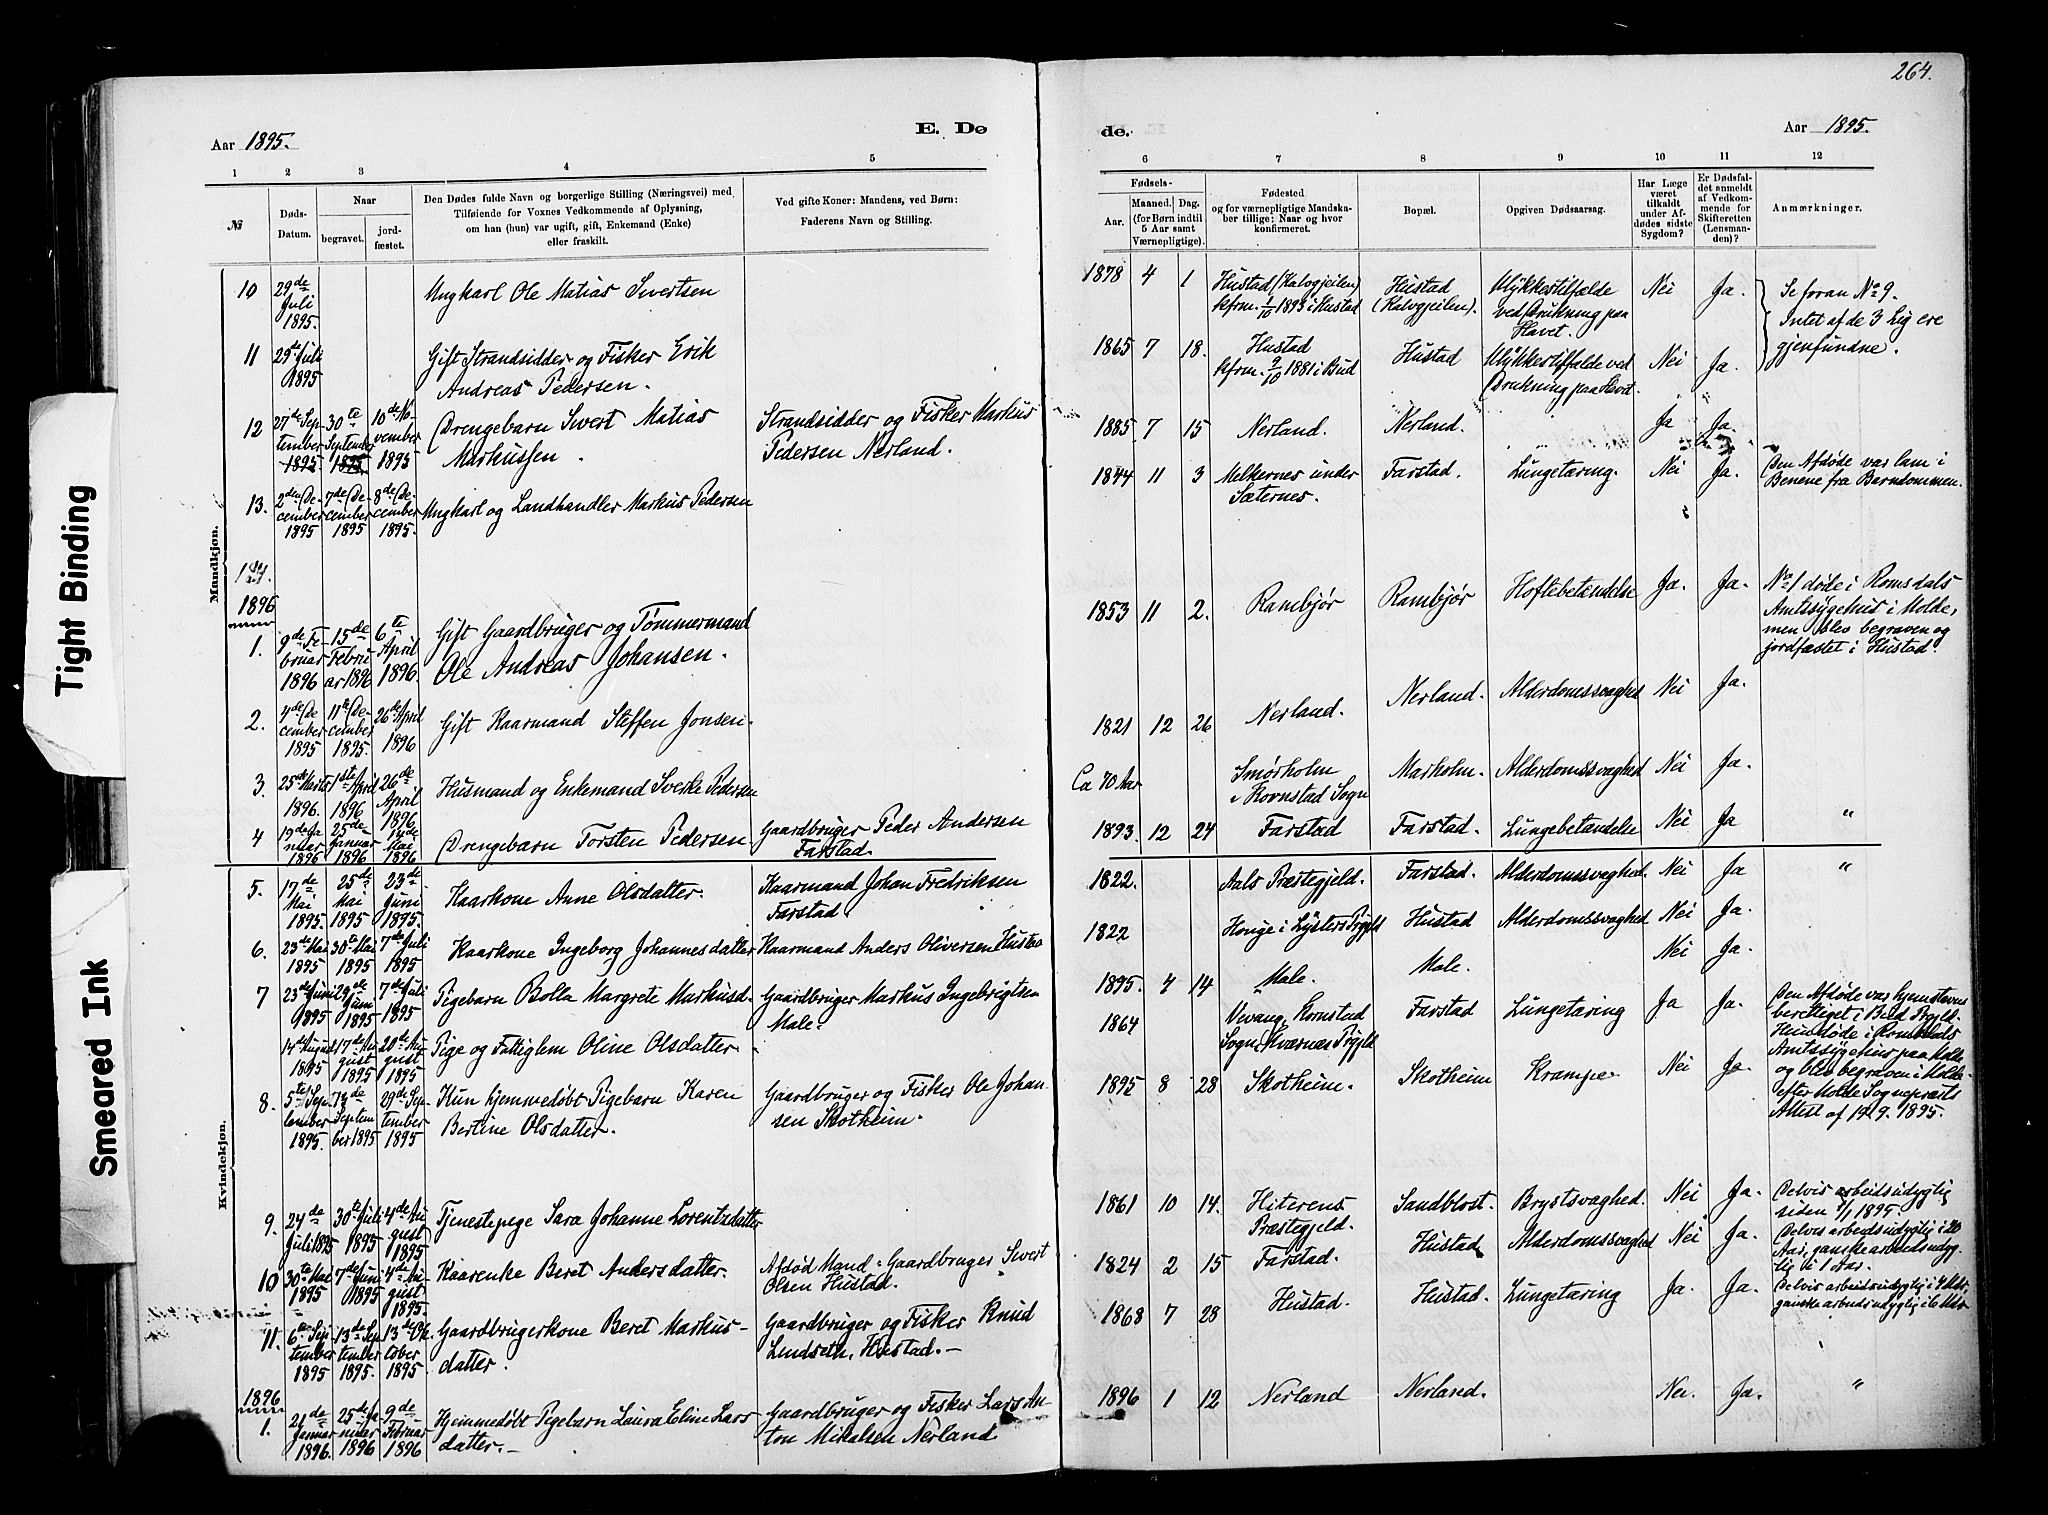 264.
Aar 1895.
E. Dø
de.
Aar 1895.
1 2 3 4 5
6 7 8 9 10 11 12
№
Døds-
Datum.
Naar
begravet.
jord-
fæstet.
Den Dødes fulde Navn og borgerlige Stilling (Næringsvei) med
Tilføiende for Voxnes Vedkommende af Oplysning,
om han (hun) var ugift, gift, Enkemand (Enke)
eller fraskilt.
Ved gifte Koner: Mandens, ved Børn:
Faderens Navn og Stilling.
Fødsels-
Aar.
Maaned.
Dag.
(for Børn indtil
5 Aar samt
Værnepligtige).
Fødested
og for værnepligtige Mandska-
ber tillige: Naar og hvor
konfirmeret.
Bopæl.
Opgiven Dødsaarsag.
Har Læge
været
tilkaldt
under Af-
dødes sidste
Sygdom?
Er Dødsfal-
det anmeldt
af Vedkom-
mende for
Skifteretten
(Lensman-
den)?
Anmærkninger.
Mandkjøn.
10 29de Juli 1895.
Ungkarl Ole Matias Sivertsen
1878 4 1
Hustad (Kalvgjeilen)
kfrm. 1/10 1893 i Hustad
Hustad
(Kalvgjeilen).
Ulykkestilfælde
ved Drukning paa
Havet.
Nei Ja.
Se foran No 9.
Intet af de 3 Lig ere
gjenfundne.
11 29de Juli 1895
Gift Strandsidder og Fisker Erik
Andreas Pedersen.
1865 7 18.
Hustad
kfrm. 2/10 1881 i Bud
Hustad
Ulykkestilfælde ved
Drukning paa Havet.
Nei Ja.
12 27de September 1895 30te September 1895 10de November 1895
Drengebarn Sivert Matias
Markussen.
Strandsidder og Fisker Markus
Pedersen Nerland.
1885 7 15 Nerland. Nerland. Ja Ja.
13. 2den December 1895 7de December 1895 8de December 1895.
Ungkarl og Landhandler Markus Pedersen
1844 11 3
Melkernes under
Sæternes.
Farstad. Lungetæring. Nei Ja.
Den Afdøde var lam i
Benene fra Barndommen.
1896
1. 9de Februar 1896 15de Februar 1896 6te April 1896.
Gift Gaardbruger og Tømmermand
Ole Andreas Johansen.
1853 11 2. Rambjør Rambjør Hoftebetændelse Ja. Ja.
No 1 døde i Romsdals
Amtssygehus i Molde,
men blev begraven og
jordfæstet i Hustad.
2. 4de December 1895 11te December 1895. 26de April 1896
Gift Kaarmand Steffen Jonsen.
1821 12 26 Nerland. Nerland. Alderdomssvaghed Nei Ja.
3. 25de Marts 1896. 1ste April 1896 26de April 1896
Husmand og Enkemand Sveike Pedersen
Ca 70 Aar
Smørholm
i Kornstad Sogn
Markolm. Alderdomssvaghed Nei Ja.
4 19de Januar 1896 25de Januar 1896 14de Mai 1896
Drengebarn Torsten Pedersen.
Gaardbruger Peder Andersen
Farstad.
1893. 12 24 Farstad Farstad. Lungebetændelse Nei Ja "
Kvindekjøn.
5. 17de Mai 1895 25de Mai 1895 23de Juni 1895.
Kaarkone Anne Olsdatter.
Kaarmand Johan Fredriksen
Farstad.
1822. Aals Præstegjeld. Farstad. Alderdomssvaghed. Nei Ja "
6. 23de Mai 1895 30te Mai 1895 7de Juli 1895
Kaarkone Ingeborg Johannesdatter
Kaarmand Anders Oliversen Hustad
1822 Houge i Lysters Prgjld Hustad Alderdomssvaghed Nei Ja.
7 23de Juni 1895 29de Juni 1895 7de Juli 1895
Pigebarn Bolla Margrete Markusd.
Gaardbruger Markus Ingebrigtsen
Male.
1895. 4 14 Male. Male. Nei Ja.
14de August 1895 17de August 1895 20de August 1895
Pige og Fattiglem Oline Olsdatter.
1864
Vevang, Kornstad
Sogn, Kværnes Prgjld
Farstad Lungetæring Ja Ja.
Den Afdøde var hjemstavns
berettiget i Bud Prgjld.
Hun døde i Romsdals
Amtssygehus paa Molde
og blev begraven i Molde
efter Molde Sognepræsts
Attest af 19/9. 1895.
8. 5te September 1895 7de September 1895 29de September 1895
Kun hjemmedøbt Pigebarn Karen
Bertine Olsdatter.
Gaardbruger og Fisker Ole Johan
sen Skotheim.
1895 8 28 Skotheim. Skotheim Krampe Nei Ja.
9. 24de Juli 1895 30te Juli 1895 4de August 1895
Tjenestepige Sara Johanne Lorentzdatter
1861 10 14.
Hiterens
Præstegjeld.
Sandblost. Brystsvaghed. Nei Ja.
Delvis arbeidsudygtig
siden 1/1 1895.
10 30te Mai 1895 7de Juni 1895 4de August 1895
Kaarenke Beret Andersdatter.
Afdød Mand: Gaardbruger Sivert
Olsen Hustad.
1824 2 15 Farstad. Hustad Alderdomssvaghed Nei Ja.
Delvis arbeidsudygtig i 20
Aar, ganske arbeidsudyg-
tig i 1 Aar.
11. 6te September 1895 13de September 1895. 13de October 1895
Gaardbrugerkone Beret Markus-
datter.
Gaardbruger og Fisker Knud
Lindseth, Hustad.-
1868 7 28 Hustad. Hustad. Lungetæring Ja. Ja.
Delvis arbeidsudygtig i 4 Mdr,
ganske arbeidsudygtig i 6 Mdr.
1896
1. 21de Januar 1896. 25de Januar 1896 9de Februar 1896
Hjemmedøbt Pigebarn Laura Eline Lars
datter.-
Gaardbruger og Fisker Lars An-
ton Mikalsen Nerland
1896 1 12 Nerland Nerland. Nei. Ja. "
Tight Binding
Smeared Ink